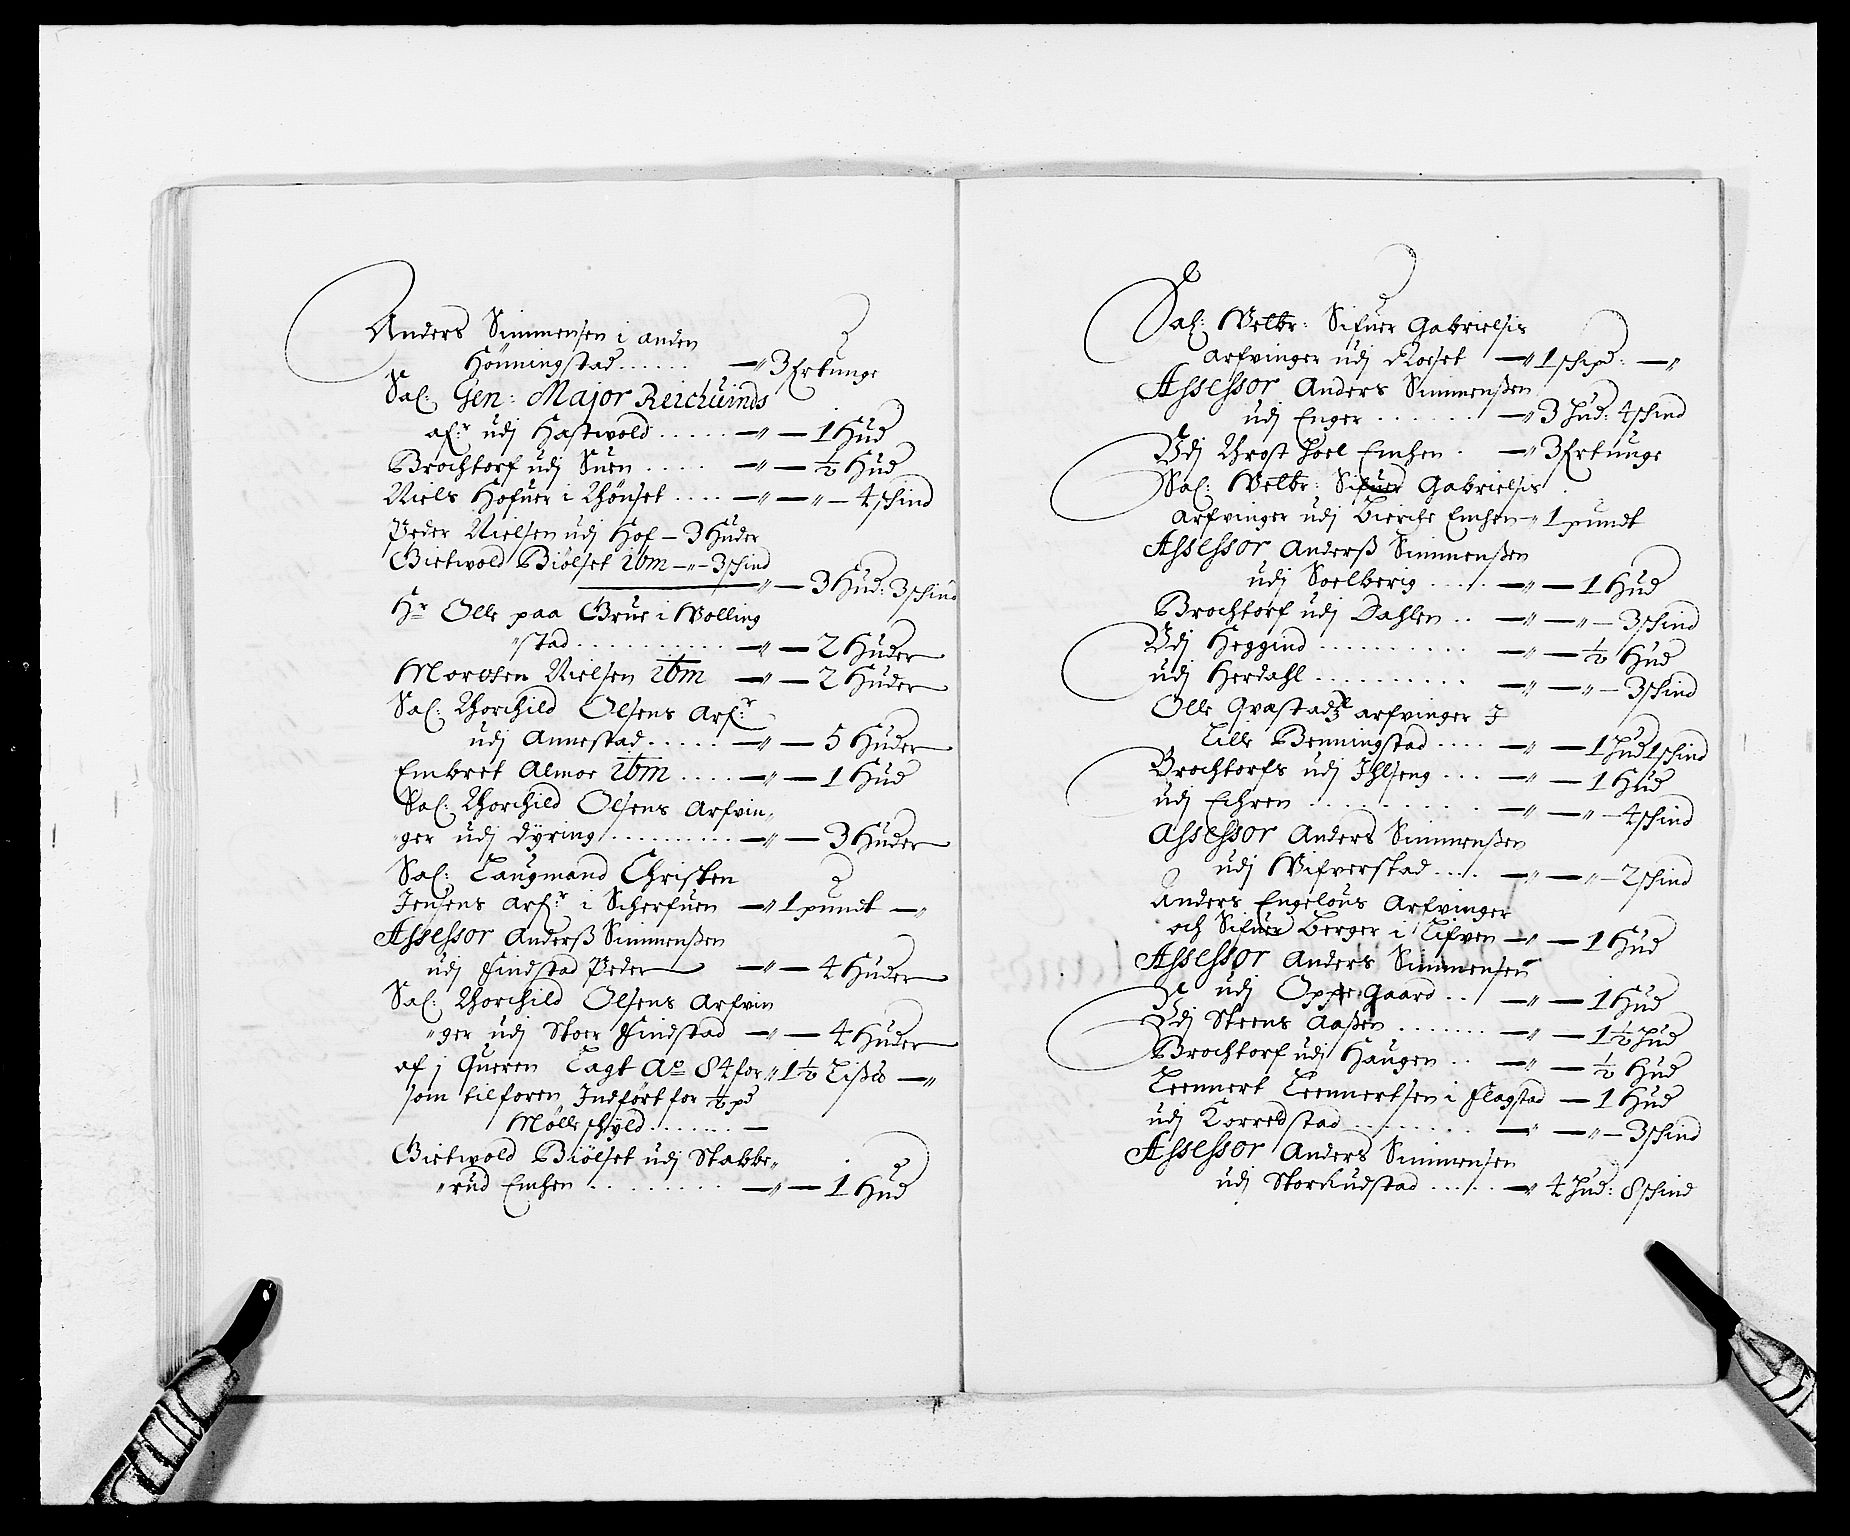 Anders Simmensen i anden
Hönningstad...... —〃 3 Ertunge
Sal: Gen: Major Reichuinds
af:r udj Hastwold..... —〃— 1 Hud
Brochtorf udj Suen.... —〃— ½ Hud
Niels Hofuer i Thönset.... —〃—〃— 4 schind
Peder Nielsen udj Hof — 3 Huder
Gietwold Biölset ibm —〃— 3 schind
〃— 3 Hud: 3 schind
Hr Olle paa Grue i Wolling
〃stad........... —〃— 2 Huder
Morthen Nielsen ibm —〃— 2 Huder
Sal: Thorchild Olsens Arf:r
udj Annestad..... —〃— 5 Huder
Embret Almoe ibm.... —〃— 1 Hud
Sal: Thorchild Olsens Arfvin〃
〃ger udj Dÿring.......... —〃— 3 Huder
Sal: Laugmand Christen
Jensens Arf:r i Scherfuen —〃 1 pundt —〃
Assessor Anderß Simmenßen
udj Findstad Peder —〃— 4 Huder
Sal: Thorchild Olsens Arfvin
〃ger udj Stoer Findstad —〃— 4 Huder
af j Queren Lagt Ao 84 for 〃 1½ Lißd —〃
som tilforen Indfört for ½ pd
Mölle schÿld....... —
Gietwold Biölset udj Stabbe〃
〃rud Emhen........ —〃— 1 Hud
Sal: Welbr: Sifuer Gabrielsis
arfvinger udj Roeset —〃 1 schipd: —〃
Assessor Anders Simmenßen
udj Enger....... —〃 3 Hud: 4 schind
Udj Throst hoel Emhen. —〃 3 Ertunge
Sal: Welbr: Sifuer Gabrielsis
Arfvinger udj Bierche Emhen —〃 1 pundt
Assessor Anderß Simmenßen
udj Soelberig..... —〃— 1 Hud
Brochtorf udj Dahlen.. —〃—〃— 3 schind
Udj Heggind.......... —〃— ½ Hud
udj Herdahl.......... —〃—〃— 3 schind
Olle Qvastadz arfvinger J
Lille Benningstad.... —〃— 1 Hud 1 schind
Brochtorfs udj Jhlseng... —〃— 1 Hud
udj Echren.......... —〃—〃— 4 schind
Assessor Anders Simmenßen
udj Wifverstad.... —〃—〃— 2 schind
Anders Engelous Arfvinger
och Sifuer Berger i Lifven —〃— 1 Hud
Assessor Anders Simmensen
udj Oppe Gaard.. —〃— 1 Hud
Udj Steens Aaßen....... —〃— 1½ Hud
Brochtorf udj Haugen.. —〃— ½ Hud
Leennert Leennertsen i Flagstad — 1 Hud
udj Korredstad........ —〃—〃— 3 schind
Assessor Anders Simmensen
udj Storhudstad..... —〃 4 Hud: 8 schind